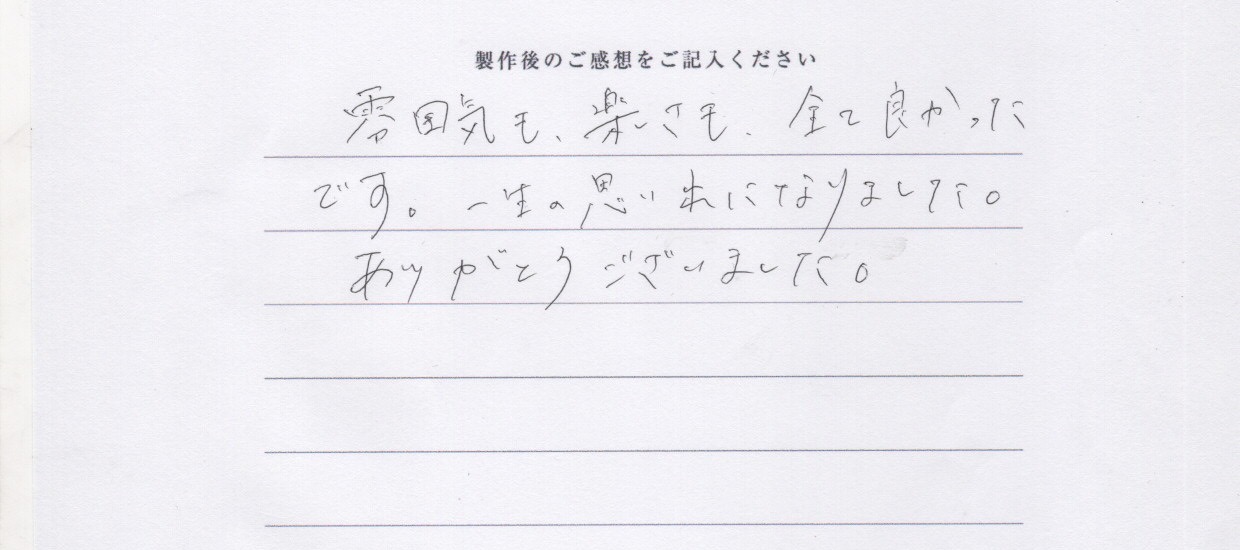 製作後のご感想をご記入ください
雰囲気も、楽しさも、全て良かった
です。一生の思いれになりました。
ありがとうございました。